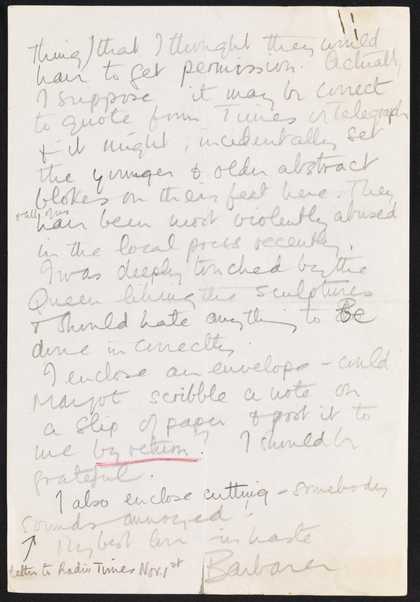 thing) that I thought they would
have to get permission. Actually
I suppose it may be correct
to quote from Times or Telegraph
& it might, incidentally set
the younger & older abstract
blokes on their feet here. They
really
have been most violently abused
in the local press recently.
I was deeply touched by the
Queen liking the sculptures
& should hate anything to Be
done incorrectly.
I enclose an envelope - could
Margot scribble a note on
a slip of paper & post it to
me by return. I should be
grateful.
I also enclose cutting - somebody
sounds annoyed!
Letter to Radio Times Nov. 1st
My best love in haste
Barbara